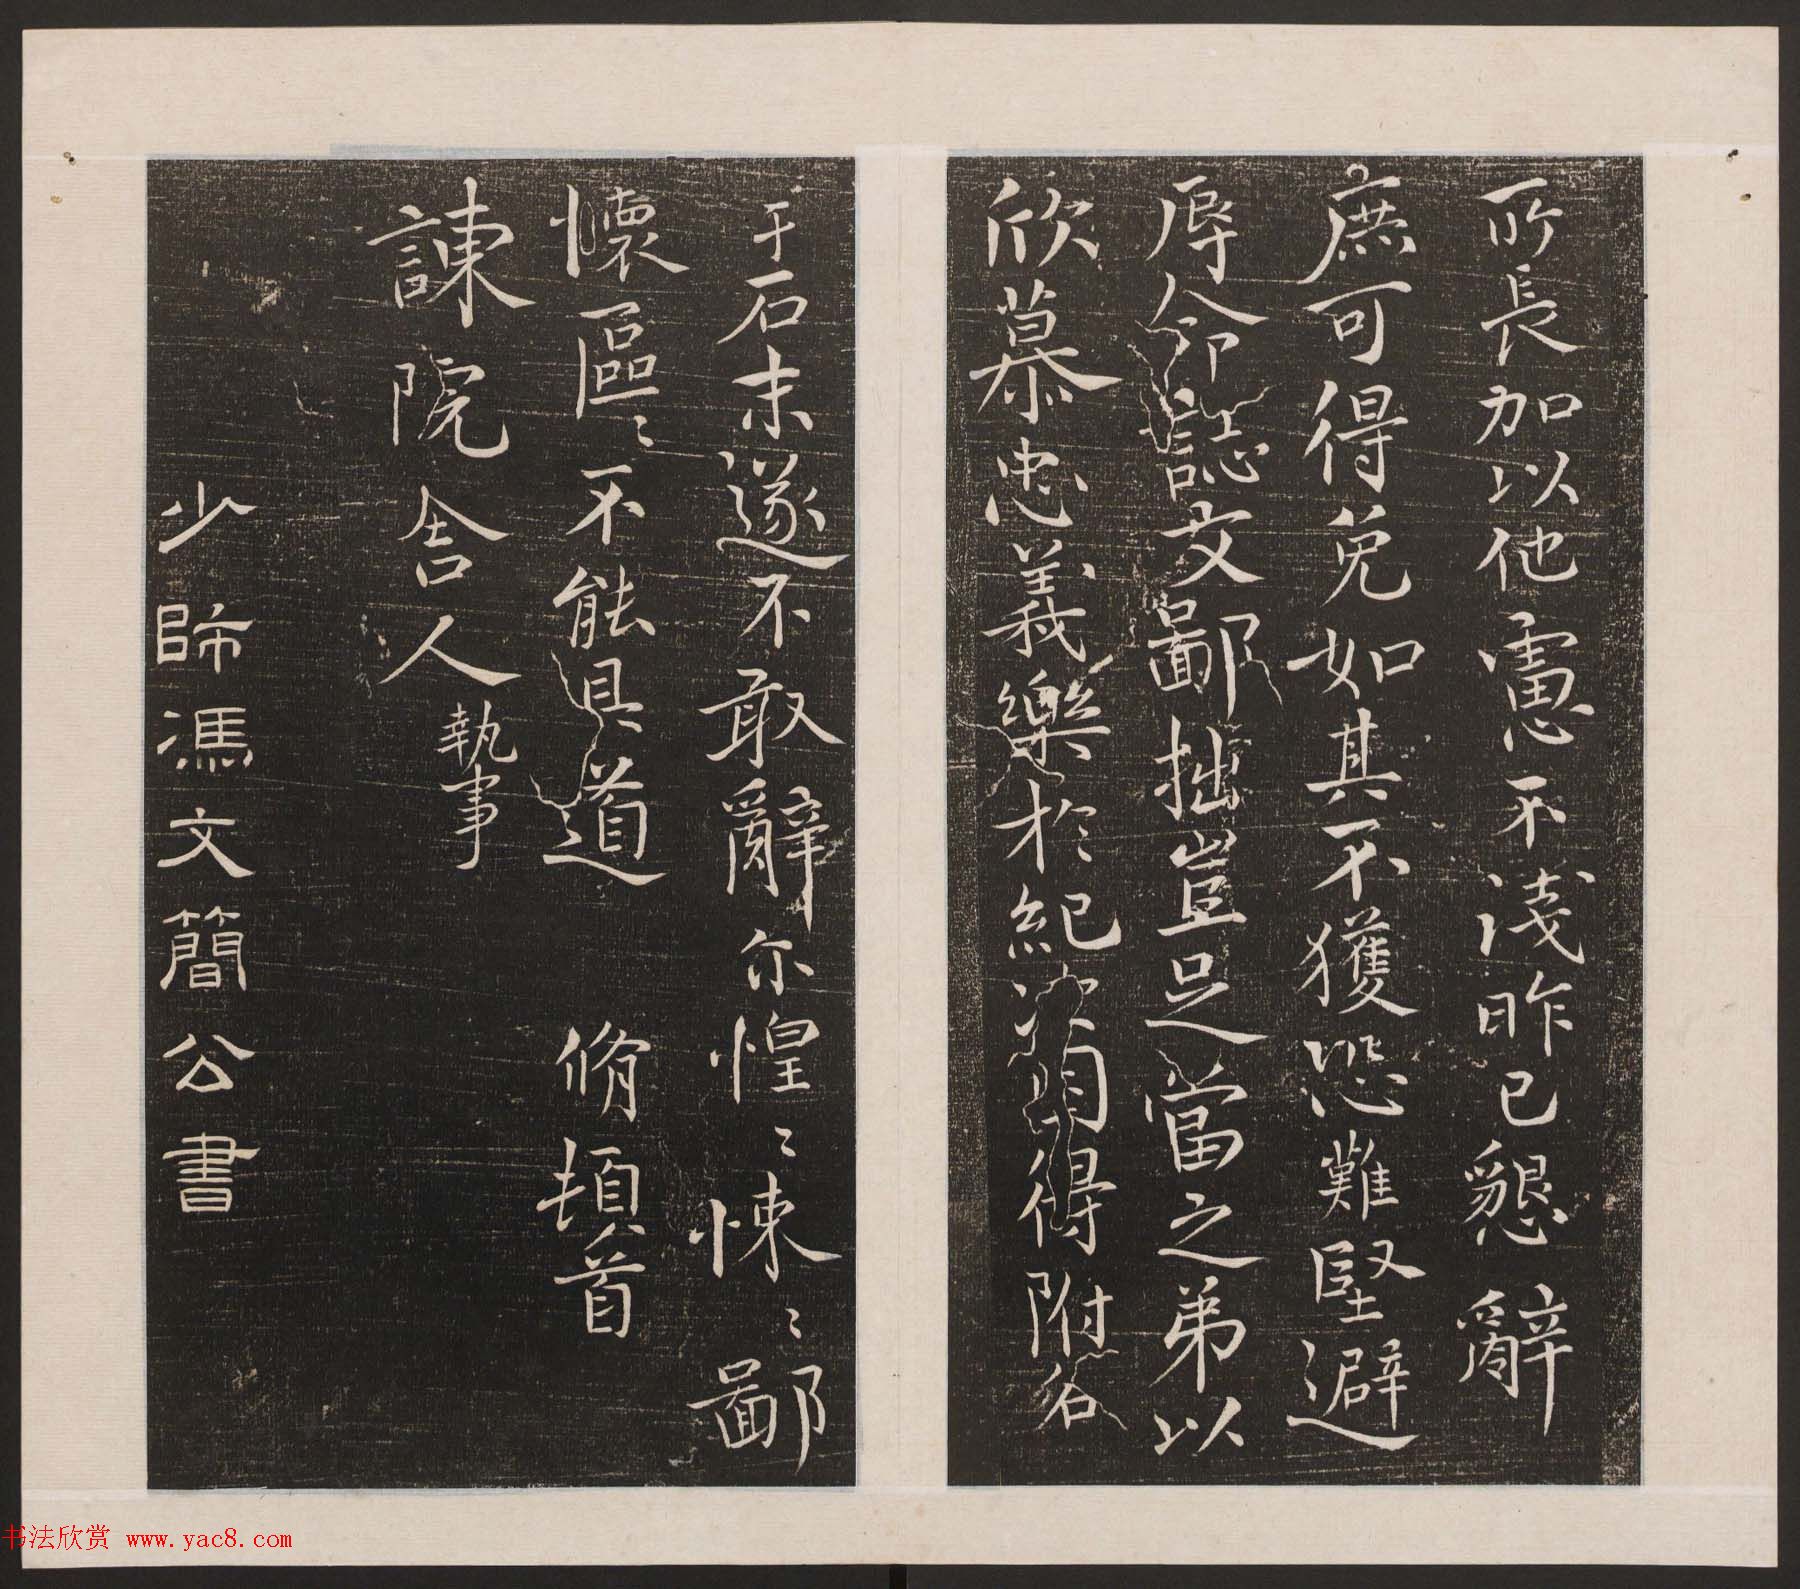 所長加以他慮不淺昨已懇辭
庶可得免如其不獲恐難堅避
辱命誌文鄙拙豈足當之弟以
欣慕忠義樂於紀次自得附名
于石未遂不敢辭尔惶〻悚〻鄙
懷區〻不能具道 脩頓首
諫院舍人執事
少師馮文簡公書
书法欣赏 www.yac8.com